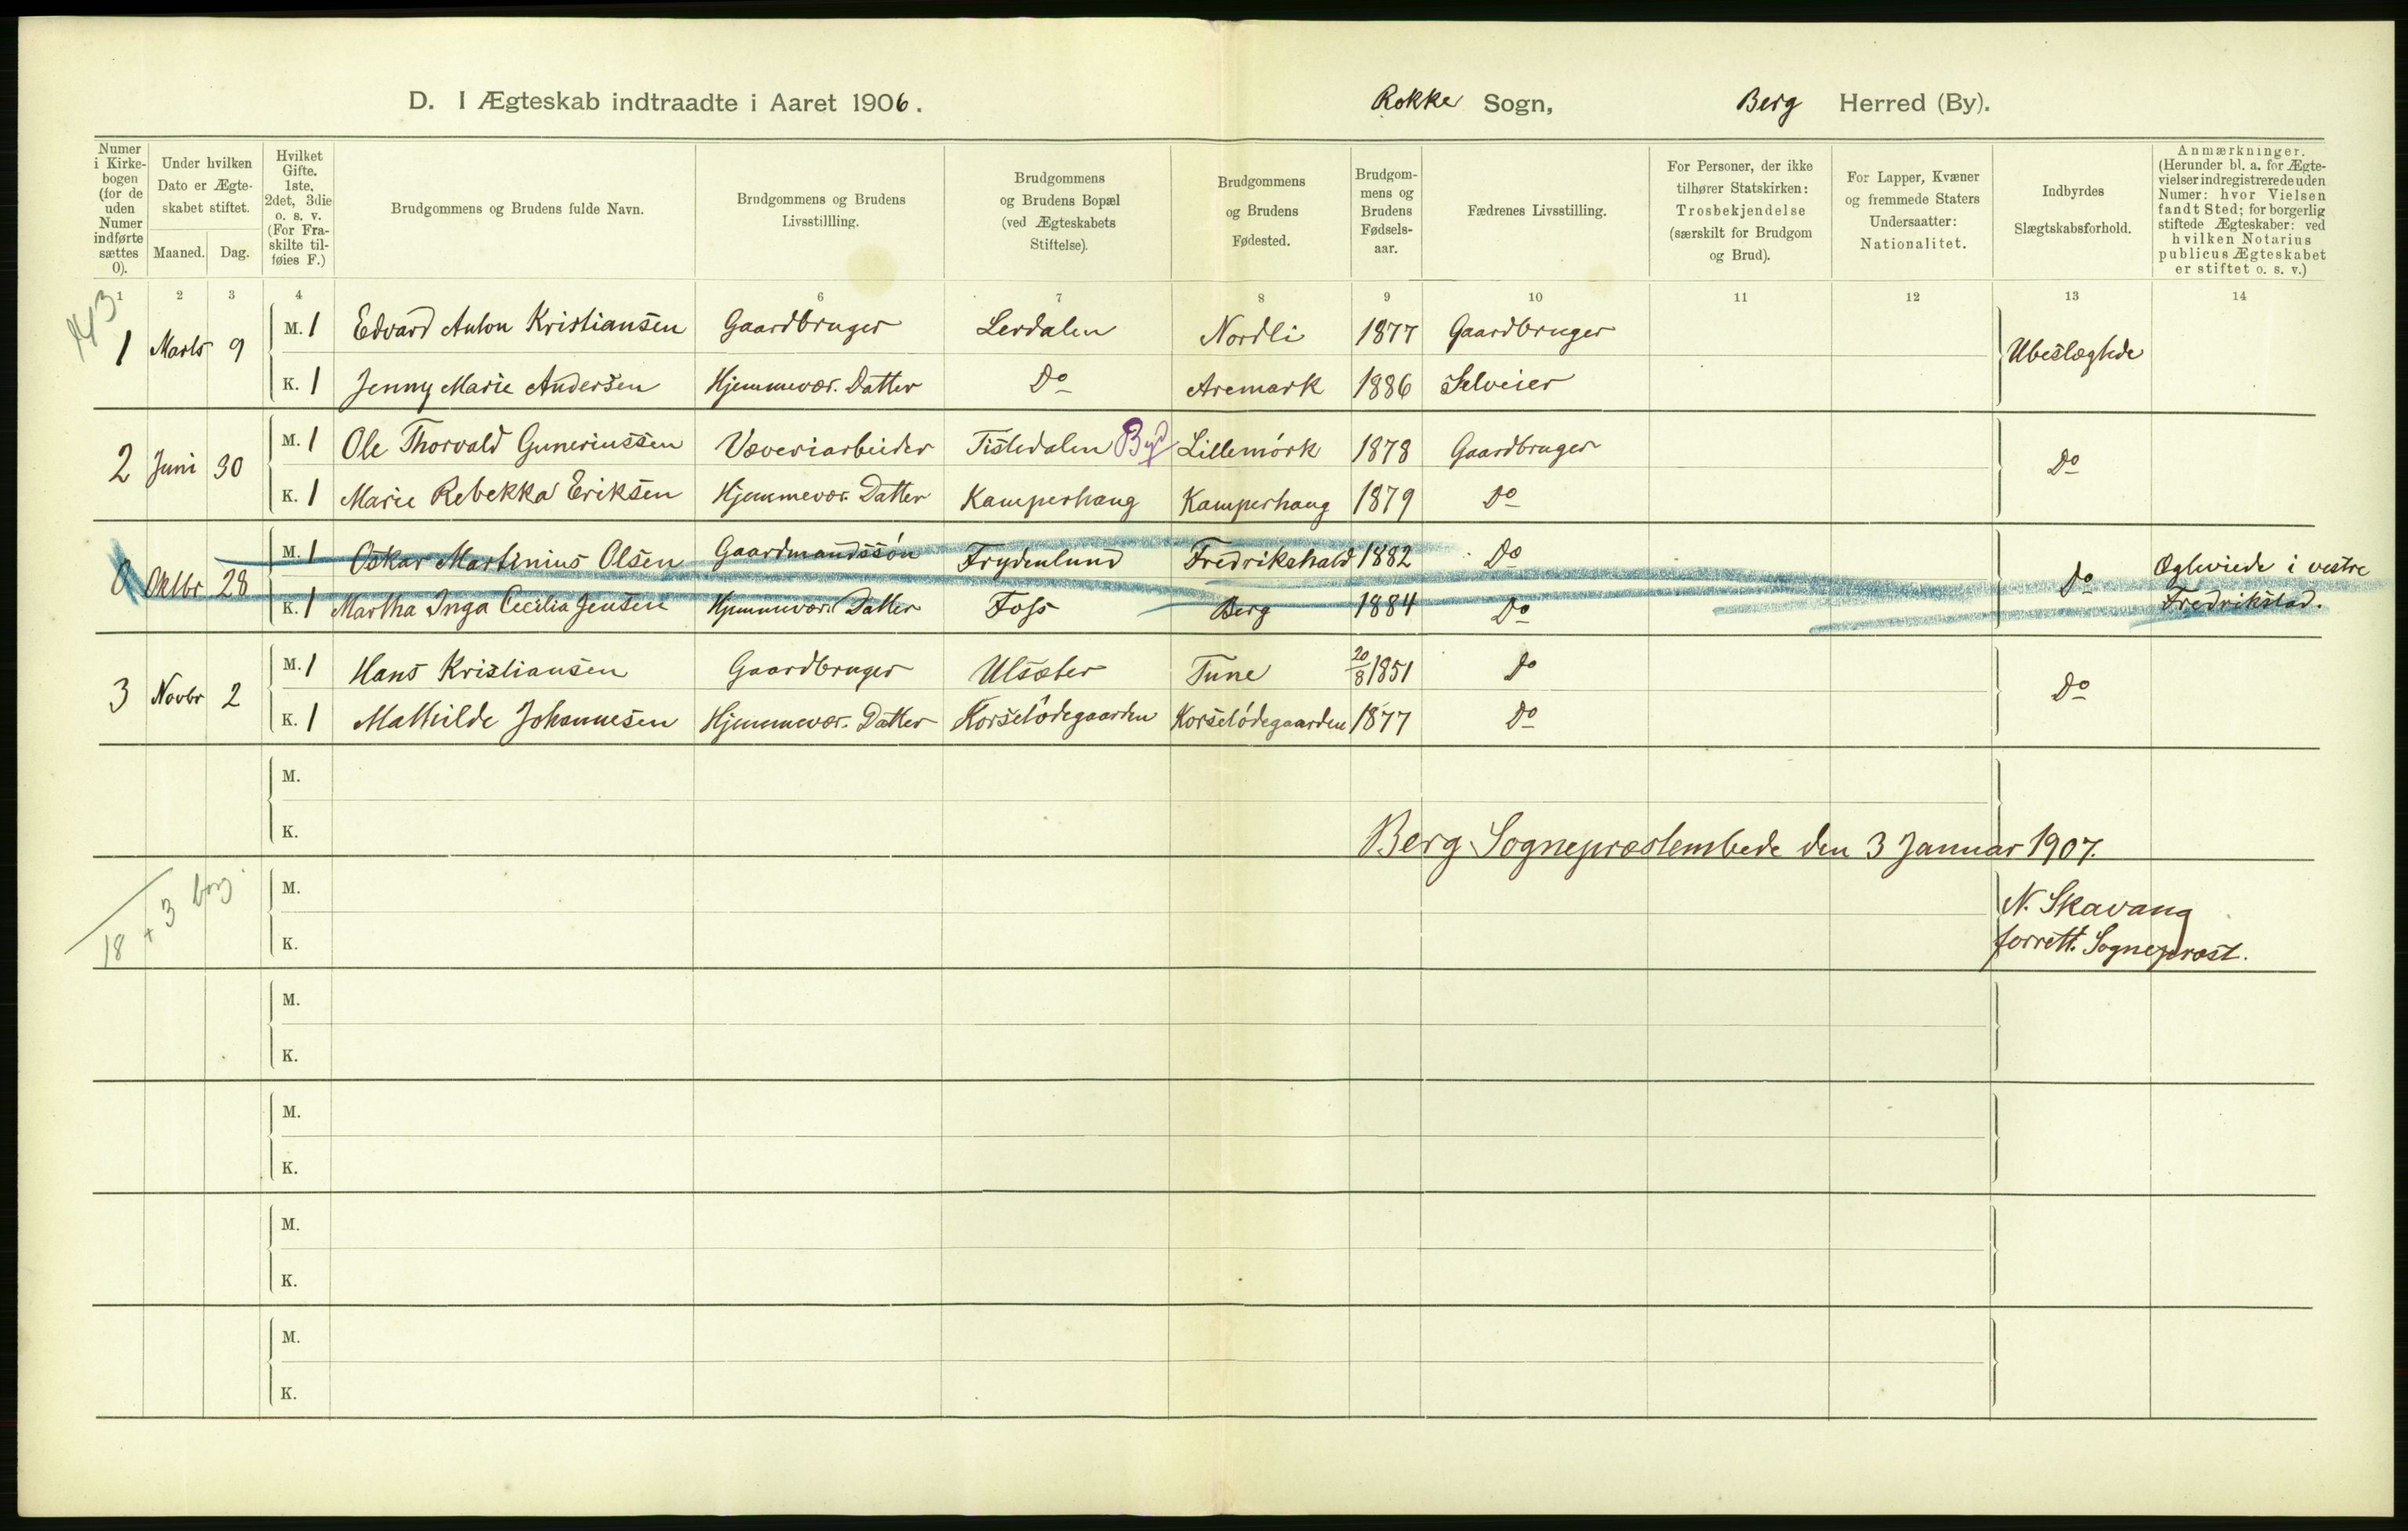 D. I Ægteskab indtraadte i Aaret 1906. Rokke Sogn, Berg Herred (By).
Numer i Kirkebogen (for de uden Numer indførte sættes 0).
Under hvilken Dato er Ægteskabet stiftet.
Maaned. Dag.
Hvilket Gifte. 1ste, 2det, 3die o. s. v. (For Fraskilte tilføies F.)
Brudgommens og Brudens fulde Navn.
Brudgommens og Brudens Livsstillling.
Brudgommens og Brudens Bopæl (ved Ægteskabets Stiftelse).
Brudgommens og Brudens Fødested.
Brudgommens og Brudens Fødselsaar.
Fædrenes Livsstilling.
For Personer, der ikke tilhører Statskirken: Trosbekjendelse (særskilt for Brudgom og Brud).
For Lapper, Kvæner og fremmede Staters Undersaatter: Nationalitet.
Indbyrdes Slægtskabsforhold.
Anmærkninger. (Herunder bl. a. for Ægtevielser indregistrerede uden Numer: hvor Vielsen fandt Sted; for borgerlig stiftede Ægteskaber: ved hvilken Notarius publicus Ægteskabet er stiftet o. s. v.)
1 2 3 4 6 7 8 9 10 11 12 13 14
1 Marts 9 M. 1 Edvard Anton Kristiansen Gaardbruger Lerdalen Nordli 1877 Gaardbruger Ubeslægtede
K. 1 Jenny Marie Andersen Hjemmevær. Datter Do Aremark 1886 Selveier
2 Juni 30 M. 1 Ole Thorvald Guneriussen Væveriarbeider Tistedalen Lillemörk 1878 Gaardbruger Do
K. 1 Marie Rebekka Eriksen Hjemmevær. Datter Kamperhaug Kamperhaug 1879 Do
0 Oktbr 28 M. 1 Oskar Martinius Olsen Gaardmandssön Frydenlund Fredrikshald 1882 Do Do Ægteviede i vestre
K. 1 Martha Inga Cecilia Jensen Hjemmevær. Datter Foss Berg 1884 Do Fredrikstad.
3 Novbr 2 M. 1 Hans Kristiansen Gaardbruger Ulsæter Tune 20/8 1851 Do Do
K. 1 Mathilde Johannesen Hjemmevær. Datter Korsetödegaarden Korsetödegaarden 1877 Do
M.
K.
Berg Sognepræstembede den 3 Januar 1907.
18 + 3 borg.
M.
N. Skavang
K.
forrett. Sognepræst.
M.
K.
M.
K.
M.
K.
M.
K.